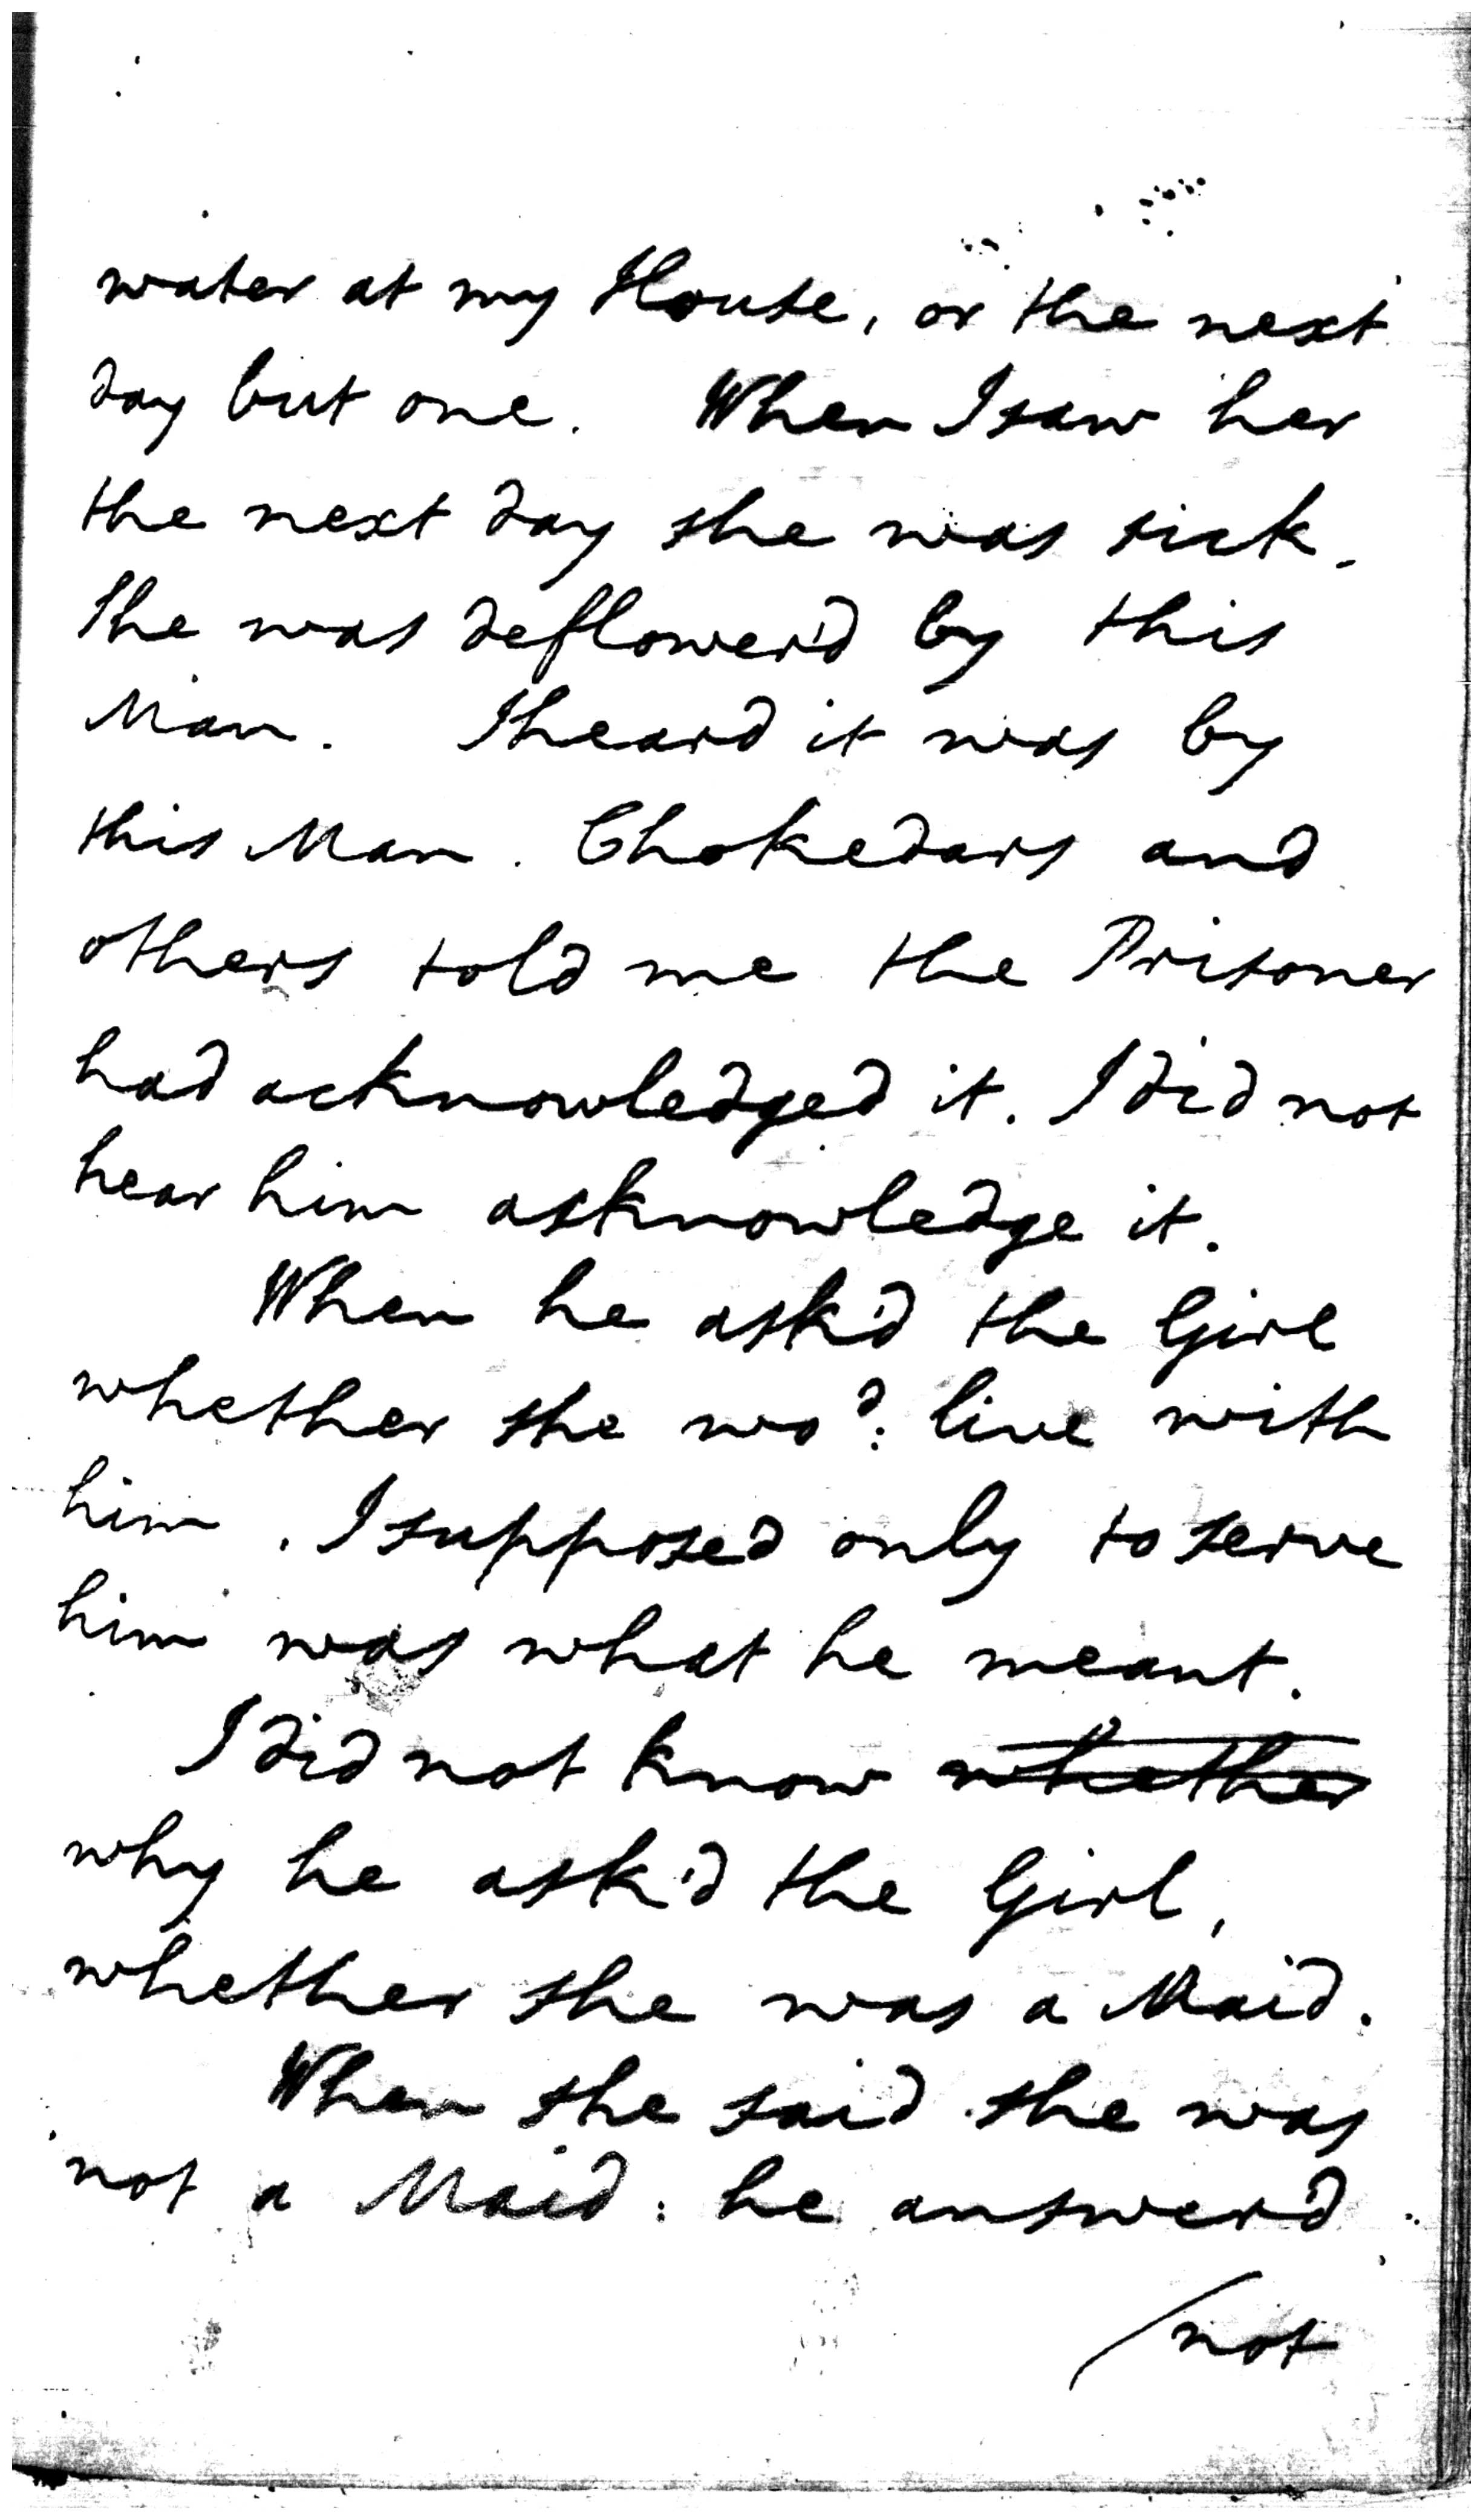 water at my House, or the next
day but one. When I saw her
the next day she was sick.
She was deflower'd by this
Man. I heard it was by
this Man. Chokedars and
others told me the Prisoner
had acknowledged it. I did not
hear him acknowledge it.
When he ask'd the Girl
whether she wo.d live with
him. I supposed only to serve
him was what he meant.
I did not know whether
why he ask'd the Girl,
whether she was a Maid.
When she said she was
not a Maid: he answer'd
not